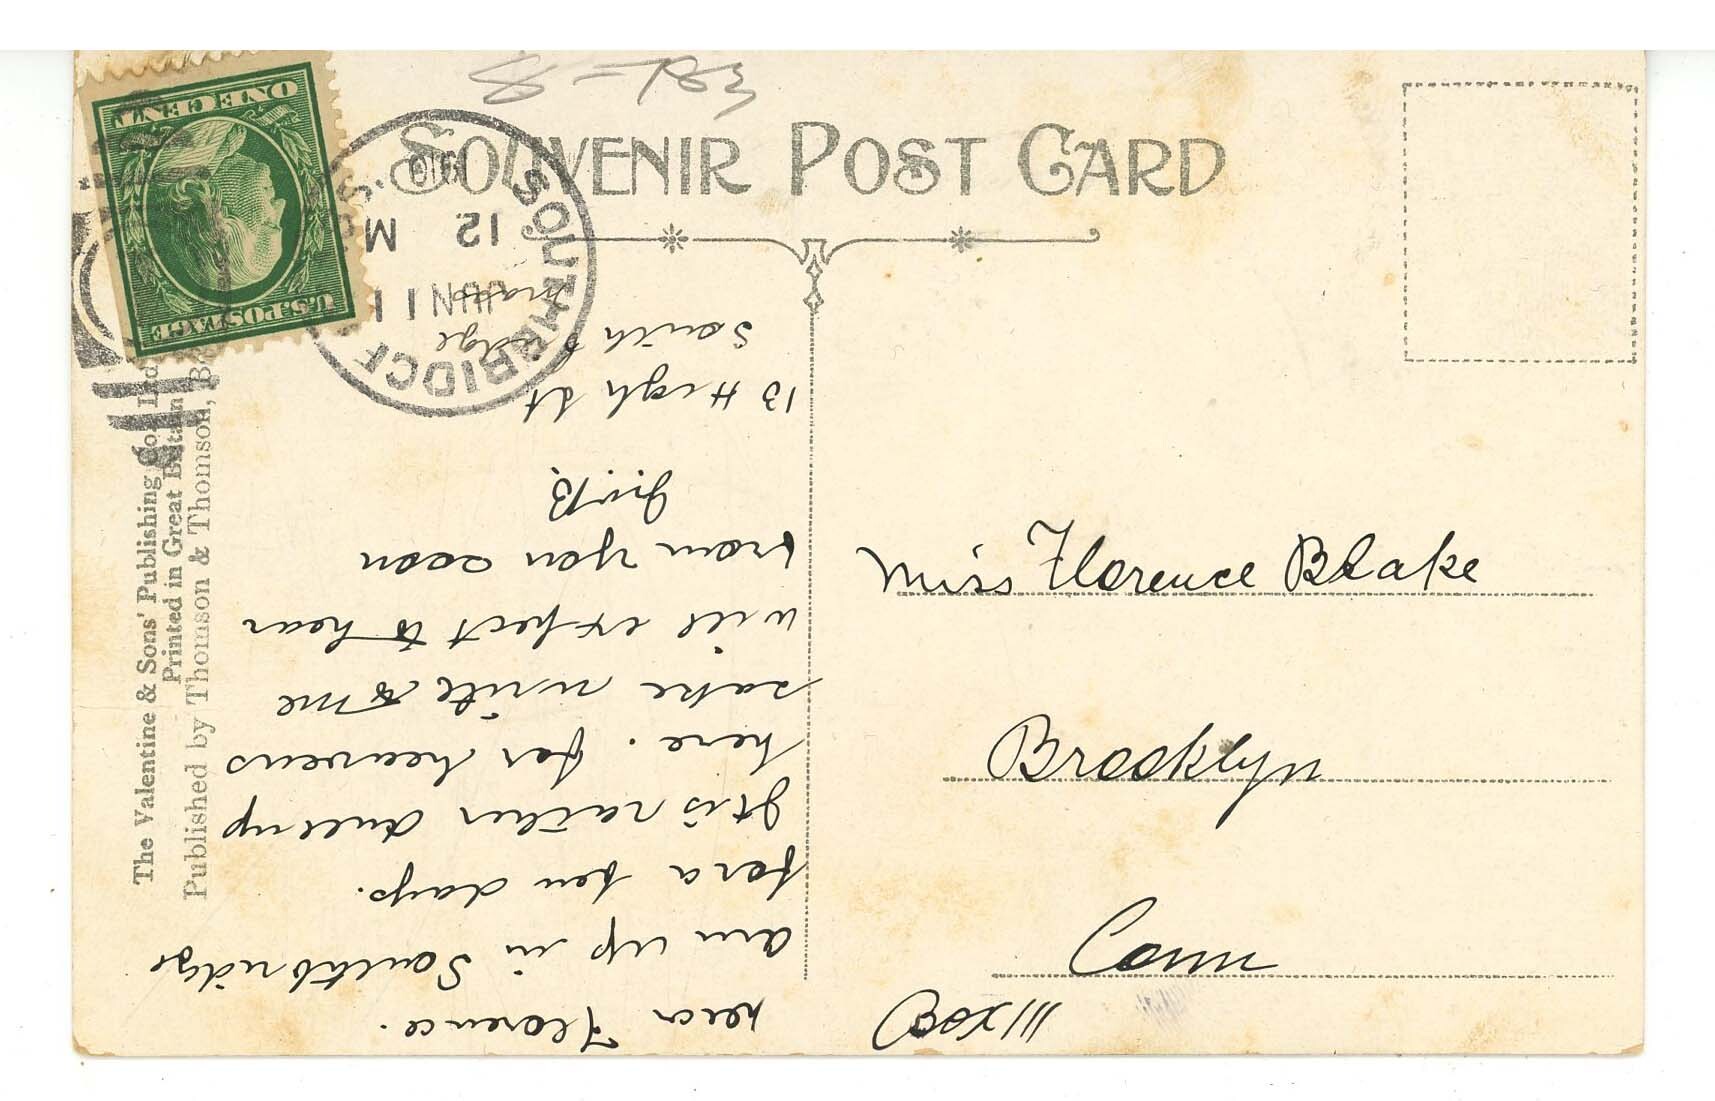 SOUVENIR POST CARD
Miss Florence Blake
Brooklyn
Conn
Box 111
Dear Florence.
am up in Southbridge
for a few days.
It is rather dull up
here. for heavens
sake write to me
will expect to hear
from you soon
13 High St
South bridge
mass
U.S. POSTAGE
ONE CENT
SOUTHBRIDGE
JUN 11
12 M
1910
MASS.
The Valentine & Sons' Publishing Co. Ltd
Printed in Great Britain
Published by Thomson & Thomson,